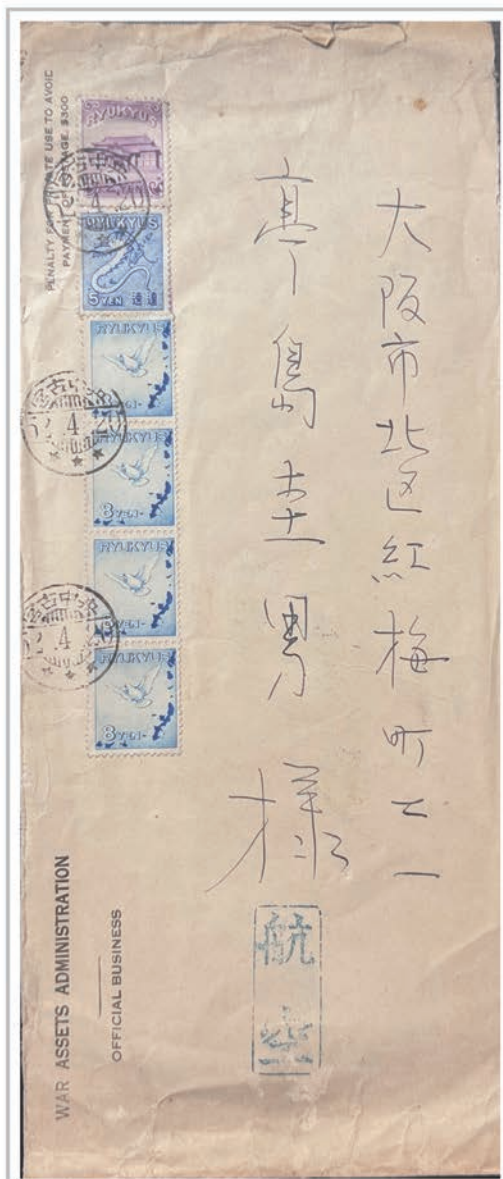 PENALTY FOR PRIVATE USE TO AVOID
PAYMENT OF POSTAGE, $300
RYUKYUS
RYUKYUS
5 YEN 速達
RYUKYUS
RYUKYUS
8 YEN
RYUKYUS
RYUKYUS
8 YEN
宮古中央
52.4.20
宮古中央
52.4.20
大阪市北区紅梅町二一
島圭男様
航空
WAR ASSETS ADMINISTRATION
OFFICIAL BUSINESS